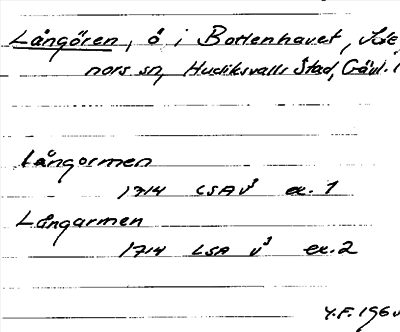 Långören, ö i Bottenhavet, Idenors sn, Hudiksvalls Stad, Gävl. l
Långormen
1714 LSA V³ ex. 1
Långarmen
1714 LSA V³ ex. 2
Y.F. 196